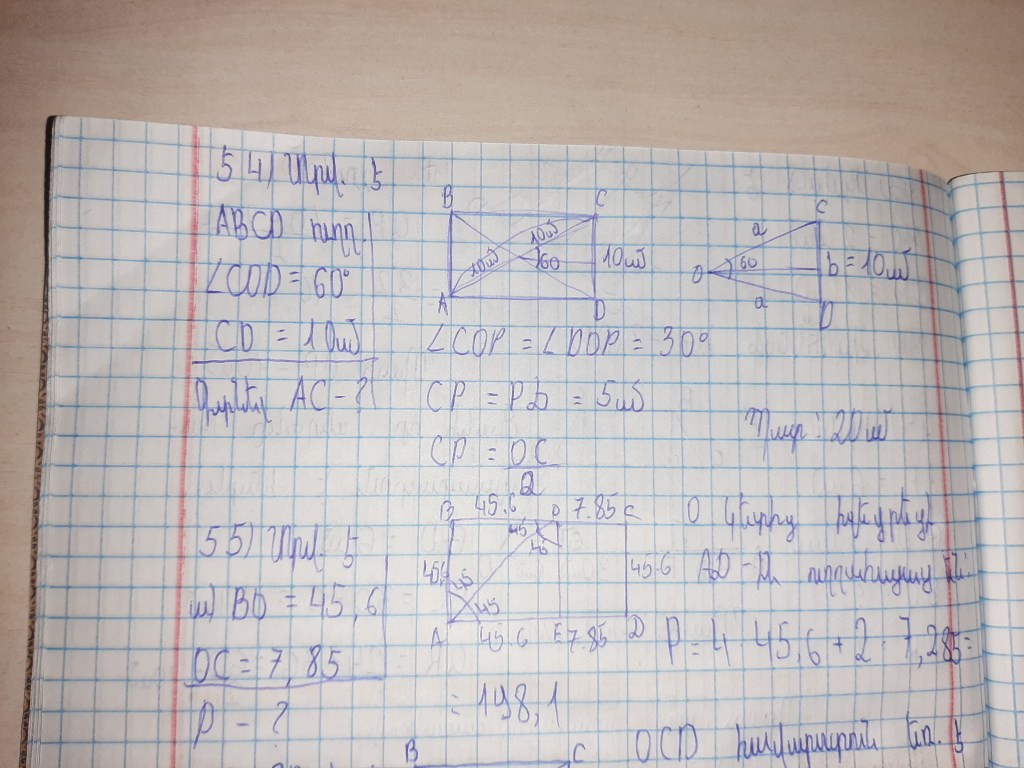 54) Տրվ. է
ABCD ուղղ.
∠COD = 60°
CD = 10սմ
Գտնել AC - ?
B C
10սմ
10սմ 60 10սմ
A D
C
a
O 60 b = 10սմ
a
D
∠COP = ∠DOP = 30°
CP = PD = 5սմ
CP = OC
2
Պատ՝ 20սմ
55) Տրվ. է
ա) BO = 45,6
OC = 7,85
P - ?
B 45.6 O 7.85 C
45 45
45 45.6
45
A 45.6 E 7.85 D
O կետից
AD -
P = 4 · 45,6 + 2 · 7,285 =
= 198,1
B C
OCD